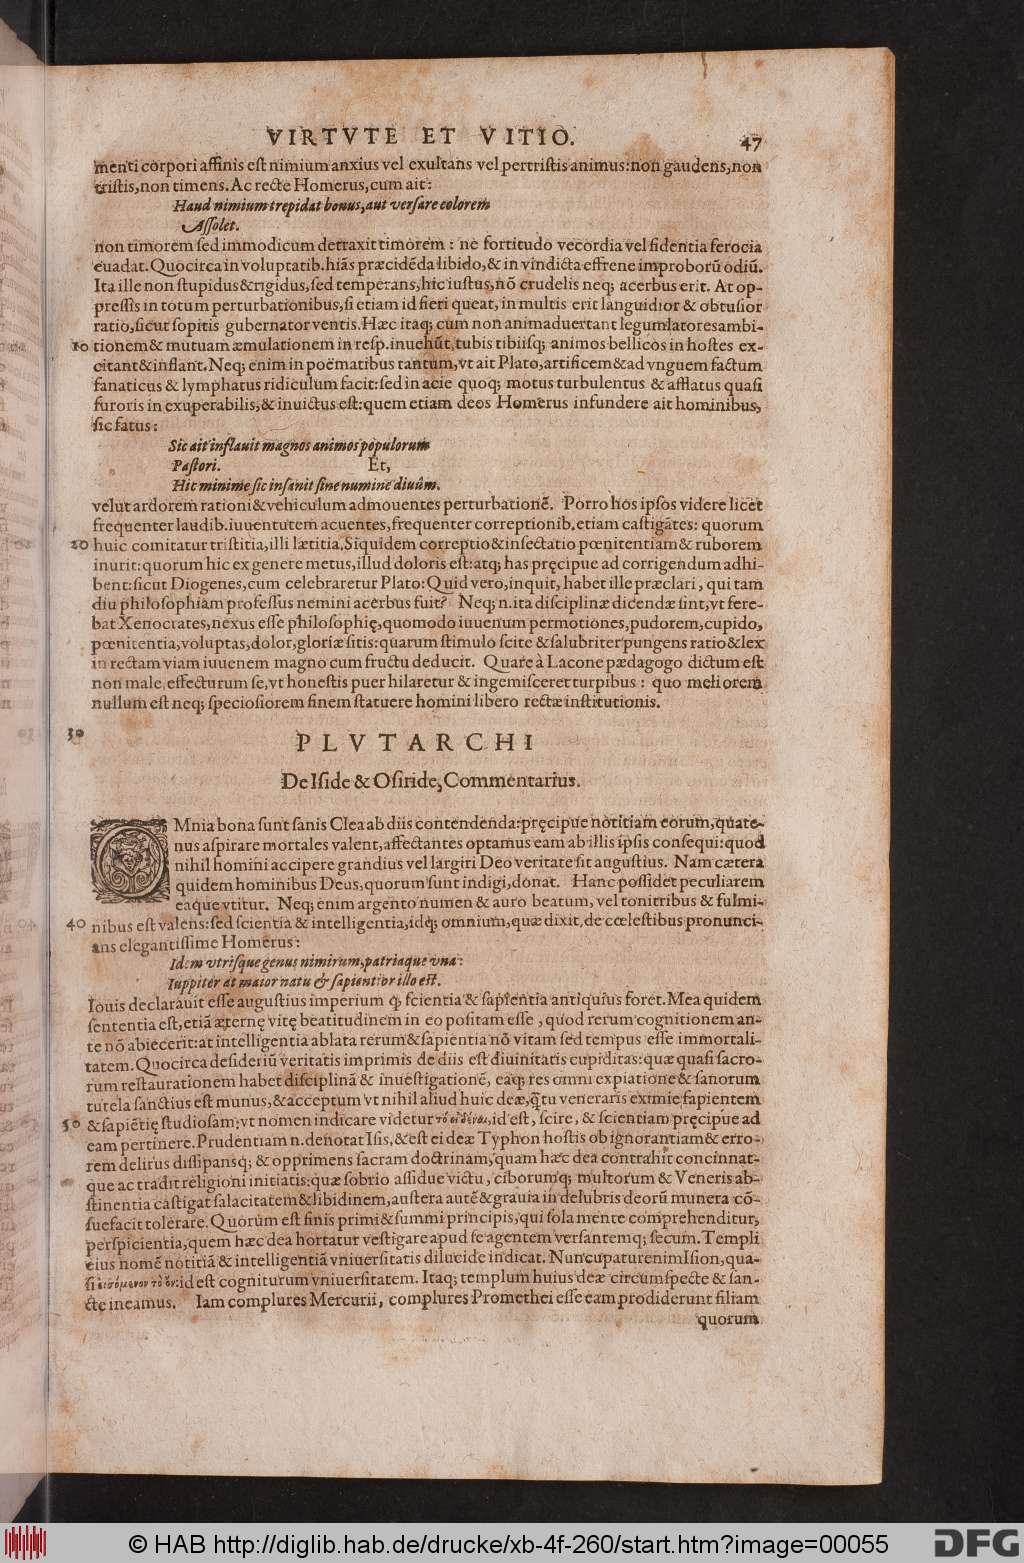 VIRTVTE ET VITIO. 47
menti corpori affinis est nimium anxius vel exultans vel pertristis animus: non gaudens, non
tristis, non timens. Ac recte Homerus, cum ait:
Haud nimium trepidat bonus, aut versare colorem
Assolet.
non timorem sed immodicum detraxit timorem: ne fortitudo vecordia vel fidentia ferocia
euadat. Quocirca in voluptatib. hiās præcidēda libido, & in vindicta effrene improborū odiū.
Ita ille non stupidus & rigidus, sed temperans, hic iustus, nō crudelis neq; acerbus erit. At op-
pressis in totum perturbationibus, si etiam id fieri queat, in multis erit languidior & obtusior
ratio, sicut sopitis gubernator ventis. Hæc itaq; cum non animaduertant legumlatores ambi-
10 tionem & mutuam æmulationem in resp. inuehūt, tubis tibiisq; animos bellicos in hostes ex-
citant & inflant. Neq; enim in poëmatibus tantum, vt ait Plato, artificem & ad vnguem factum
fanaticus & lymphatus ridiculum facit: sed in acie quoq; motus turbulentus & afflatus quasi
furoris inexuperabilis, & inuictus est: quem etiam deos Homerus infundere ait hominibus,
sic fatus:
Sic ait inflauit magnos animos populorum
Pastori. Et,
Hic minime sic insanit sine numine diuûm.
velut ardorem rationi & vehiculum admouentes perturbationē. Porro hos ipsos videre licet
frequenter laudib. iuuentutem acuentes, frequenter correptionib. etiam castigātes: quorum
20 huic comitatur tristitia, illi lætitia. Siquidem correptio & insectatio pœnitentiam & ruborem
inurit: quorum hic ex genere metus, illud doloris est: atq; has pręcipue ad corrigendum adhi-
bent: sicut Diogenes, cum celebraretur Plato: Quid vero, inquit, habet ille præclari, qui tam
diu philosophiam professus nemini acerbus fuit? Neq; n. ita disciplinæ dicendæ sint, vt fere-
bat Xenocrates, nexus esse philosophię, quomodo iuuenum permotiones, pudorem, cupido,
pœnitentia, voluptas, dolor, gloriæ sitis: quarum stimulo scite & salubriter pungens ratio & lex
in rectam viam iuuenem magno cum fructu deducit. Quare à Lacone pædagogo dictum est
non male, effecturum se, vt honestis puer hilaretur & ingemisceret turpibus: quo meliorem
nullum est neq; speciosiorem finem statuere homini libero rectæ institutionis.
30
PLVTARCHI
De Iside & Osiride, Commentarius.
OMnia bona sunt sanis Clea ab diis contendenda: pręcipue notitiam eorum, quate-
nus aspirare mortales valent, affectantes optamus eam ab illis ipsis consequi: quod
nihil homini accipere grandius vel largiri Deo veritate sit augustius. Nam cætera
quidem hominibus Deus, quorum sunt indigi, donat. Hanc possidet peculiarem
eaque vtitur. Neq; enim argento numen & auro beatum, vel tonitribus & fulmi-
40 nibus est valens: sed scientia & intelligentia, idq; omnium, quæ dixit, de cœlestibus pronunci-
ans elegantissime Homerus:
Idem vtrisque genus nimirum, patriaque vna:
Iuppiter at maior natu & sapientior illo est.
Iouis declarauit esse augustius imperium q; scientia & sapientia antiquius foret. Mea quidem
sententia est, etiā æternę vitę beatitudinem in eo positam esse, quod rerum cognitionem an-
te nō abiecerit: at intelligentia ablata rerum & sapientia nō vitam sed tempus esse immortali-
tatem. Quocirca desideriū veritatis imprimis de diis est diuinitatis cupiditas: quæ quasi sacro-
rum restaurationem habet disciplinā & inuestigationē, eaq; res omni expiatione & fanorum
tutela sanctius est munus, & acceptum vt nihil aliud huic deæ, q̃ tu veneraris eximie, sapientem
50 & sapiētię studiosam: vt nomen indicare videtur τὸ εἰδέναι, id est, scire, & scientiam pręcipue ad
eam pertinere. Prudentiam n. denotat Isis, & est ei deæ Typhon hostis ob ignorantiam & erro-
rem delirus dissipansq; & opprimens sacram doctrinam, quam hæc dea contrahit concinnat-
que ac tradit religioni initiatis: quæ sobrio assidue victu, ciborumq; multorum & Veneris ab-
stinentia castigat salacitatem & libidinem, austera autē & grauia in delubris deorū munera cō-
suefacit tolerare. Quorum est finis primi & summi principis, qui sola mente comprehenditur,
perspicientia, quem hæc dea hortatur vestigare apud se agentem versantemq; secum. Templi
eius nomē notitiā & intelligentiā vniuersitatis dilucide indicat. Nuncupatur enim Ision, qua-
si εἰσόμενον τὸ ὄν: id est cogniturum vniuersitatem. Itaq; templum huius deæ circumspecte & san-
cte ineamus. Iam complures Mercurii, complures Promethei esse eam prodiderunt filiam
quorum
© HAB http://diglib.hab.de/drucke/xb-4f-260/start.htm?image=00055 DFG